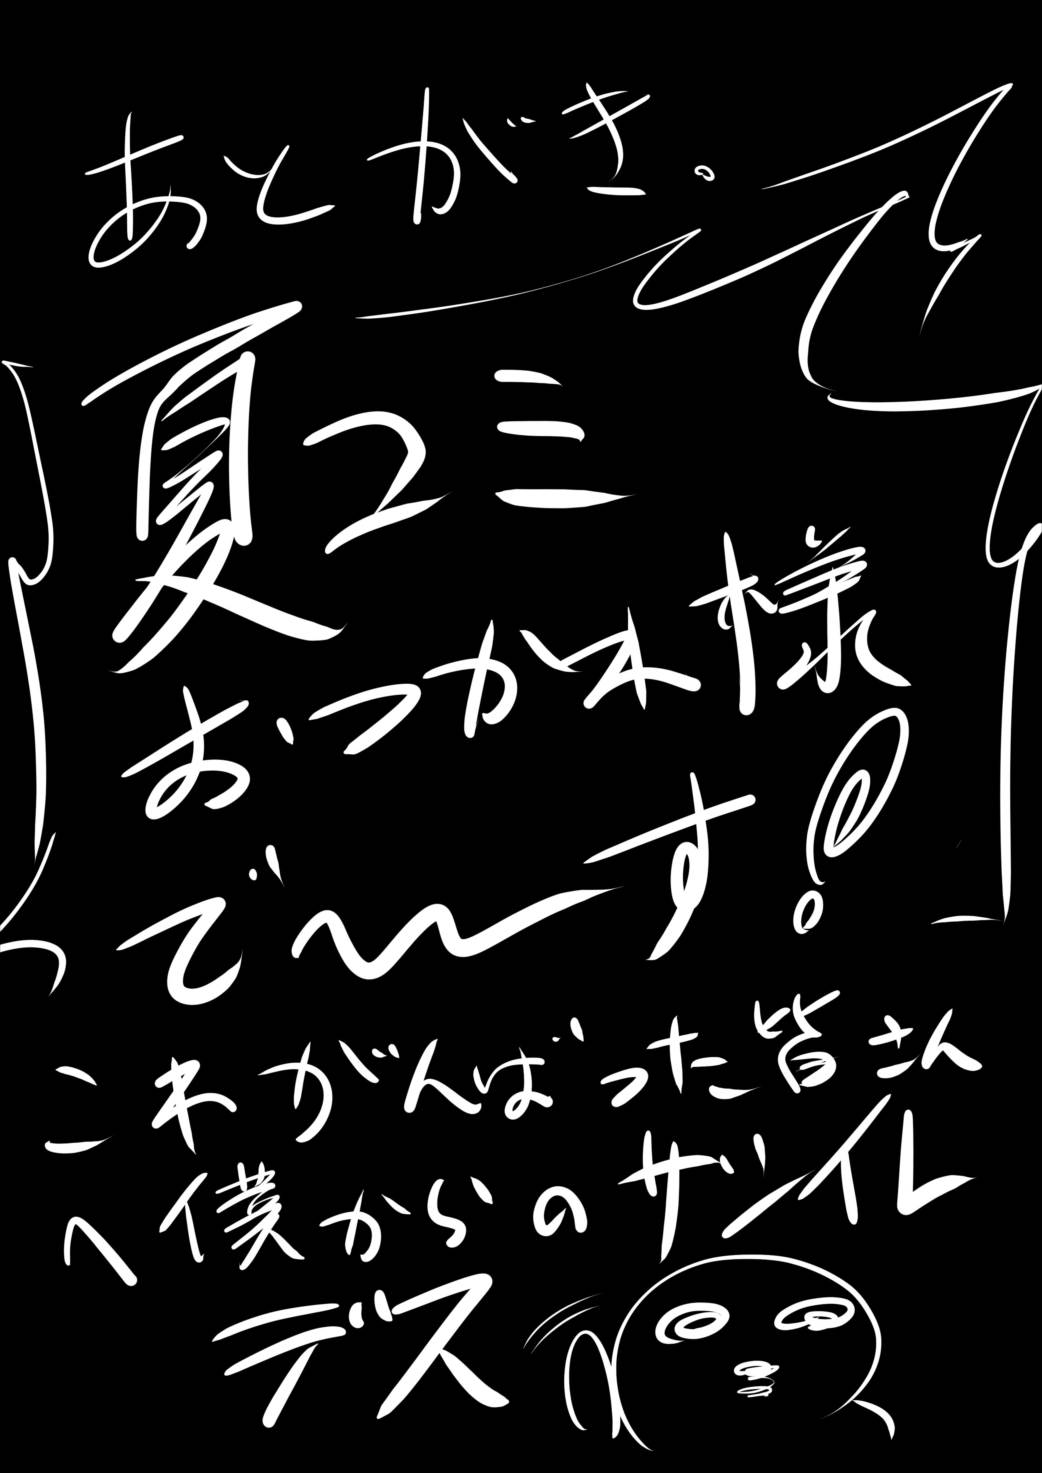 あとがき。
夏コミ
おつかれ様
で〜す!
これがんばった皆さん
へ僕からのザンイレ
デス